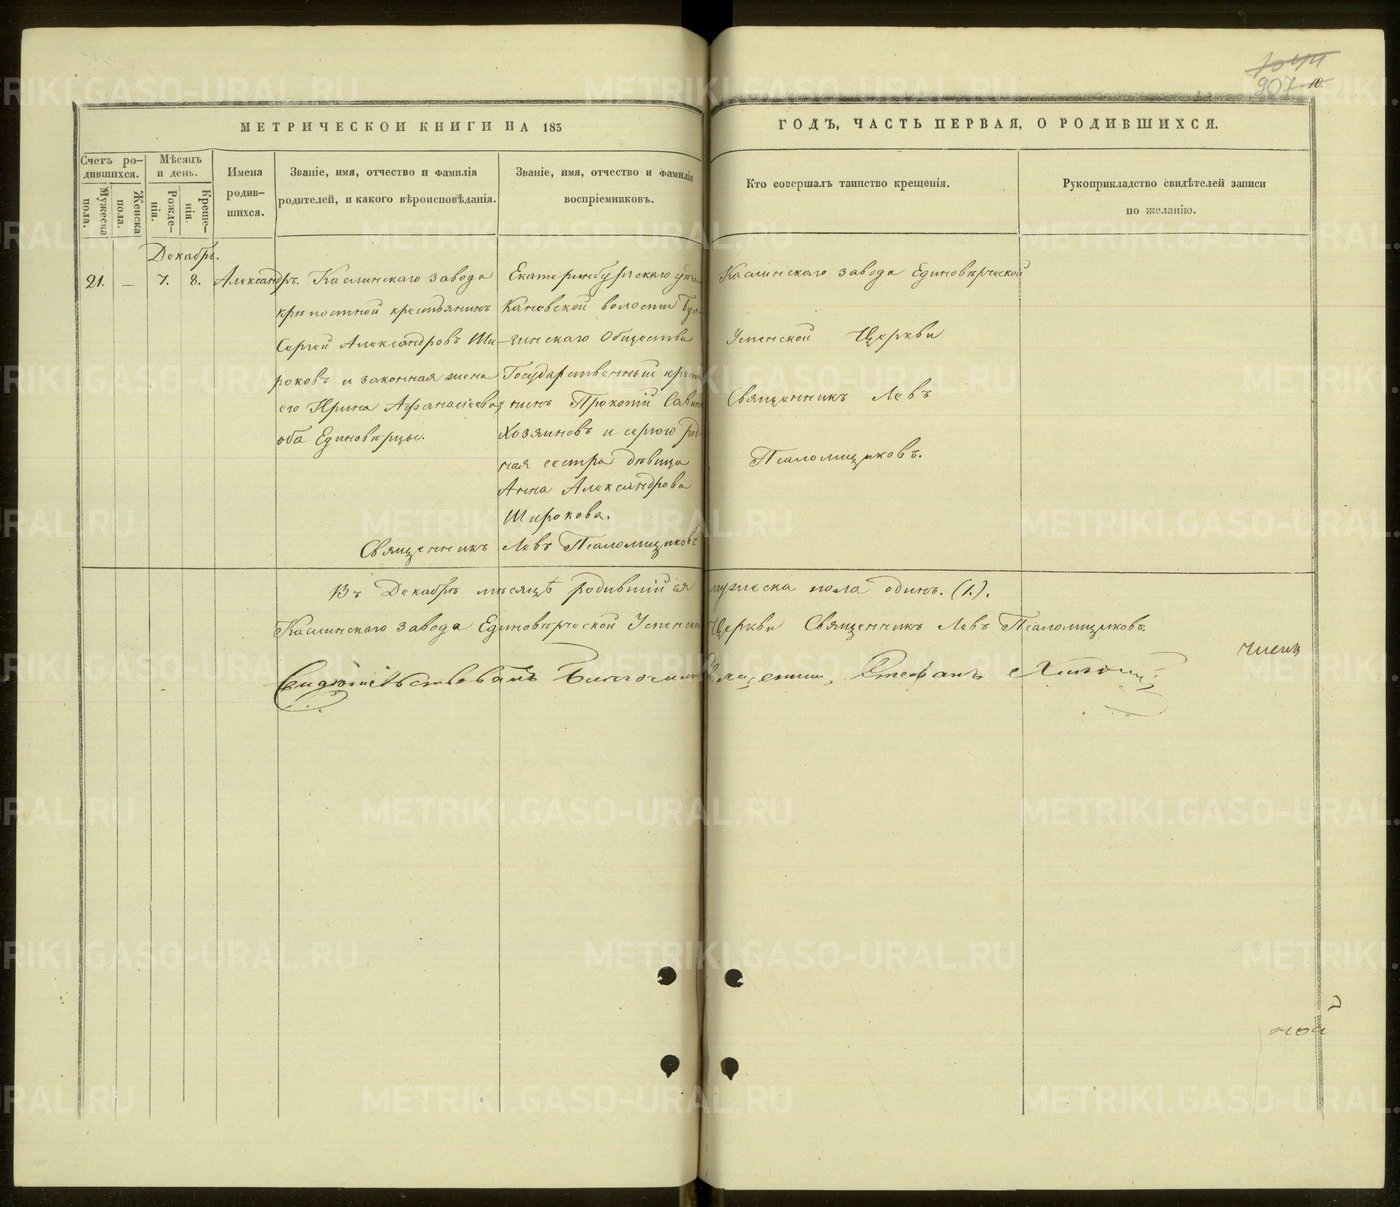 907
10.
МЕТРИЧЕСКОИ КНИГИ НА 185
ГОДЪ, ЧАСТЬ ПЕРВАЯ, О РОДИВШИХСЯ.
Счетъ ро-
дившихся.
Мужеска
пола.
Женска
пола.
Мѣсяцъ
и день.
Рожде-
нія.
Креще-
нія
Имена
родив-
шихся.
Званіе, имя, отчество и фамилія
родителей, и какого вѣроисповѣданія.
Званіе, имя, отчество и фамилія
воспріемниковъ.
Кто совершалъ таинство крещенія.
Рукоприкладство свидѣтелей записи
по желанію.
Декабрь.
21. — 7. 8. Александръ.
Каслинскаго завода
крѣпостной крестьянинъ
Сергей Александровъ Ши-
роковъ и законная жена
его Ирина Афанасіева
оба Единовѣрцы.
Екатеринбургскаго уѣзда
волости Бул-
зинскаго Общества
Государственный крестья
нинъ Прокопій Савинъ
Хозяиновъ и серою род-
ная сестра дѣвица
Анна Александрова
Широкова.
Каслинскаго завода Единовѣрческой
Успенской Церкви
Священникъ Левъ
Псаломщиковъ.
Священникъ Левъ Псаломщиковъ
Въ Декабрѣ мѣсяцѣ родившійся мужеска пола одинъ. (1.).
Каслинскаго завода Единовѣрческой Успенской Церкви Священникъ Левъ Псаломщиковъ.
Свидѣтельствовалъ Благочинный Священникъ Стефанъ
METRIKI.GASO-URAL.RU